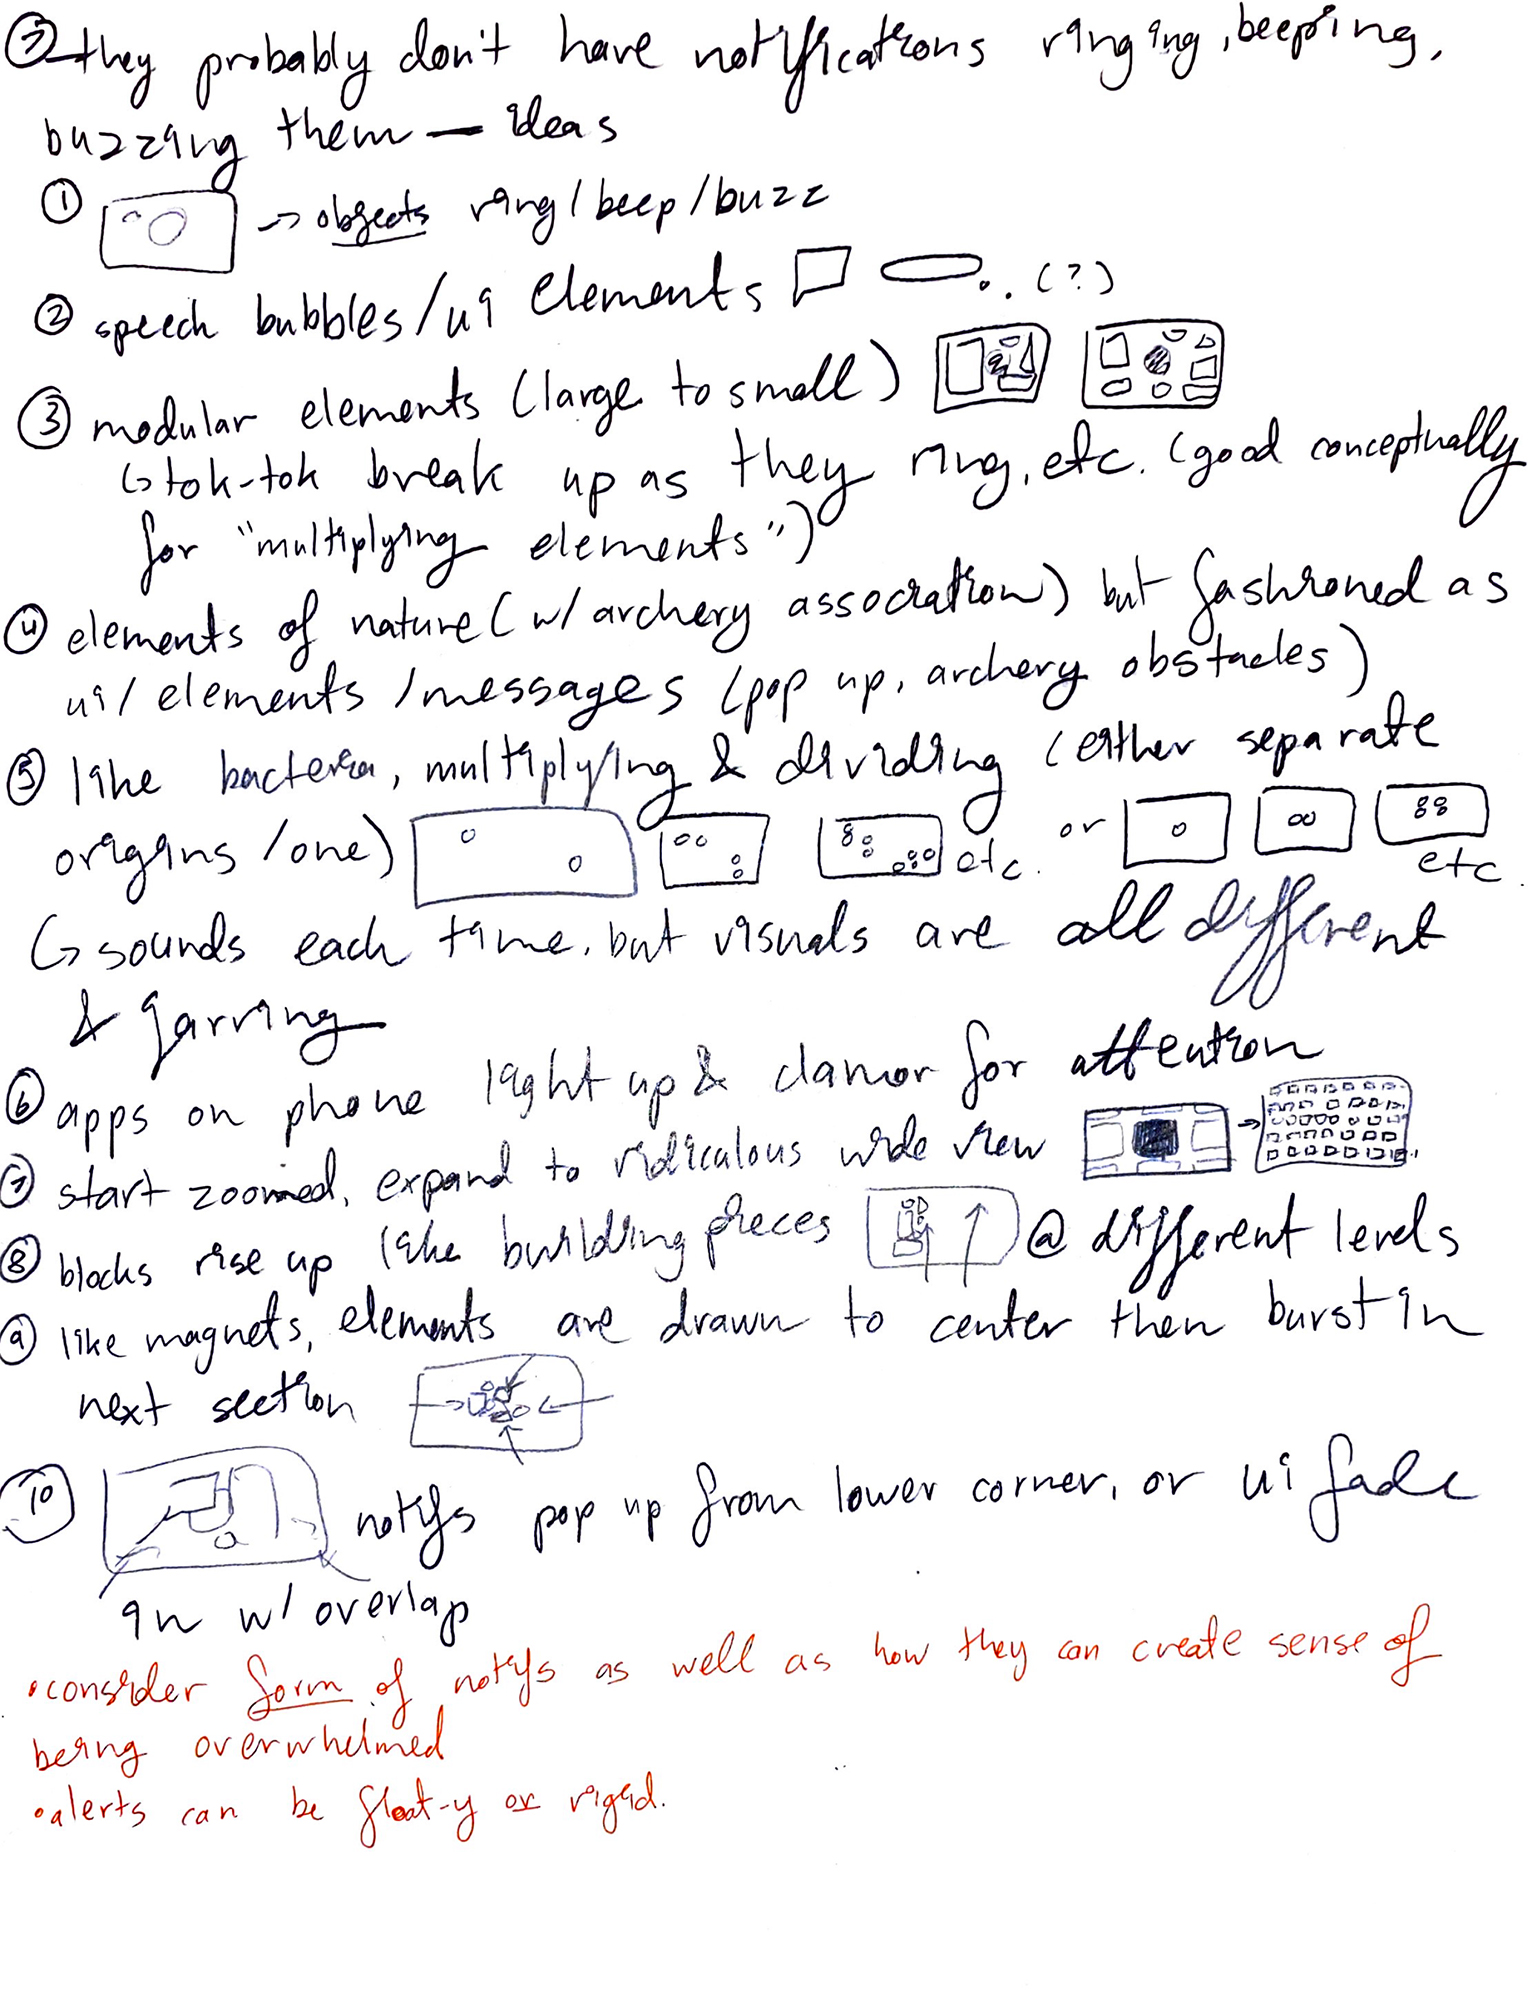 ③ they probably don't have notifications ringing, beeping,
buzzing them — ideas
① → objects ring/beep/buzz
② speech bubbles/ui elements (?)
③ modular elements (large to small)
↳ tok-tok break up as they ring, etc. (good conceptually
for "multiplying elements")
④ elements of nature (w/ archery association) but fashioned as
ui/elements/messages (pop up, archery obstacles)
⑤ like bacteria, multiplying & dividing (either separate
origins/one) etc. or etc.
↳ sounds each time, but visuals are all different
& jarring
⑥ apps on phone light up & clamor for attention
⑦ start zoomed, expand to ridiculous wide view →
⑧ blocks rise up like building pieces @ different levels
⑨ like magnets, elements are drawn to center then burst in
next section
⑩ notifs pop up from lower corner, or ui fade
in w/ overlap
• consider form of notifs as well as how they can create sense of
being overwhelmed
• alerts can be float-y or rigid.